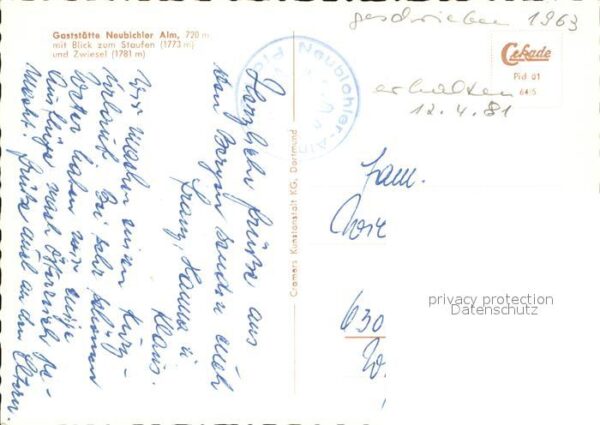 Gaststätte Neubichler Alm, 720 m
mit Blick zum Staufen (1773 m)
und Zwiesel (1781 m)
geschrieben 1963
Cekade
Pid 01
64/5
erhalten
12.4.81
Neubichler-Alm
Cramers Kunstanstalt KG, Dortmund
Herzliche Grüße aus
den Bergen senden euch
Franz, Hanna u
Klaus.
Wir machen einen Kurz-
urlaub. Bei sehr schönem
Wetter haben wir einige
Ausflüge nach Österreich ge-
macht. Grüße auch an den Eltern.
Fam.
630
privacy protection
Datenschutz